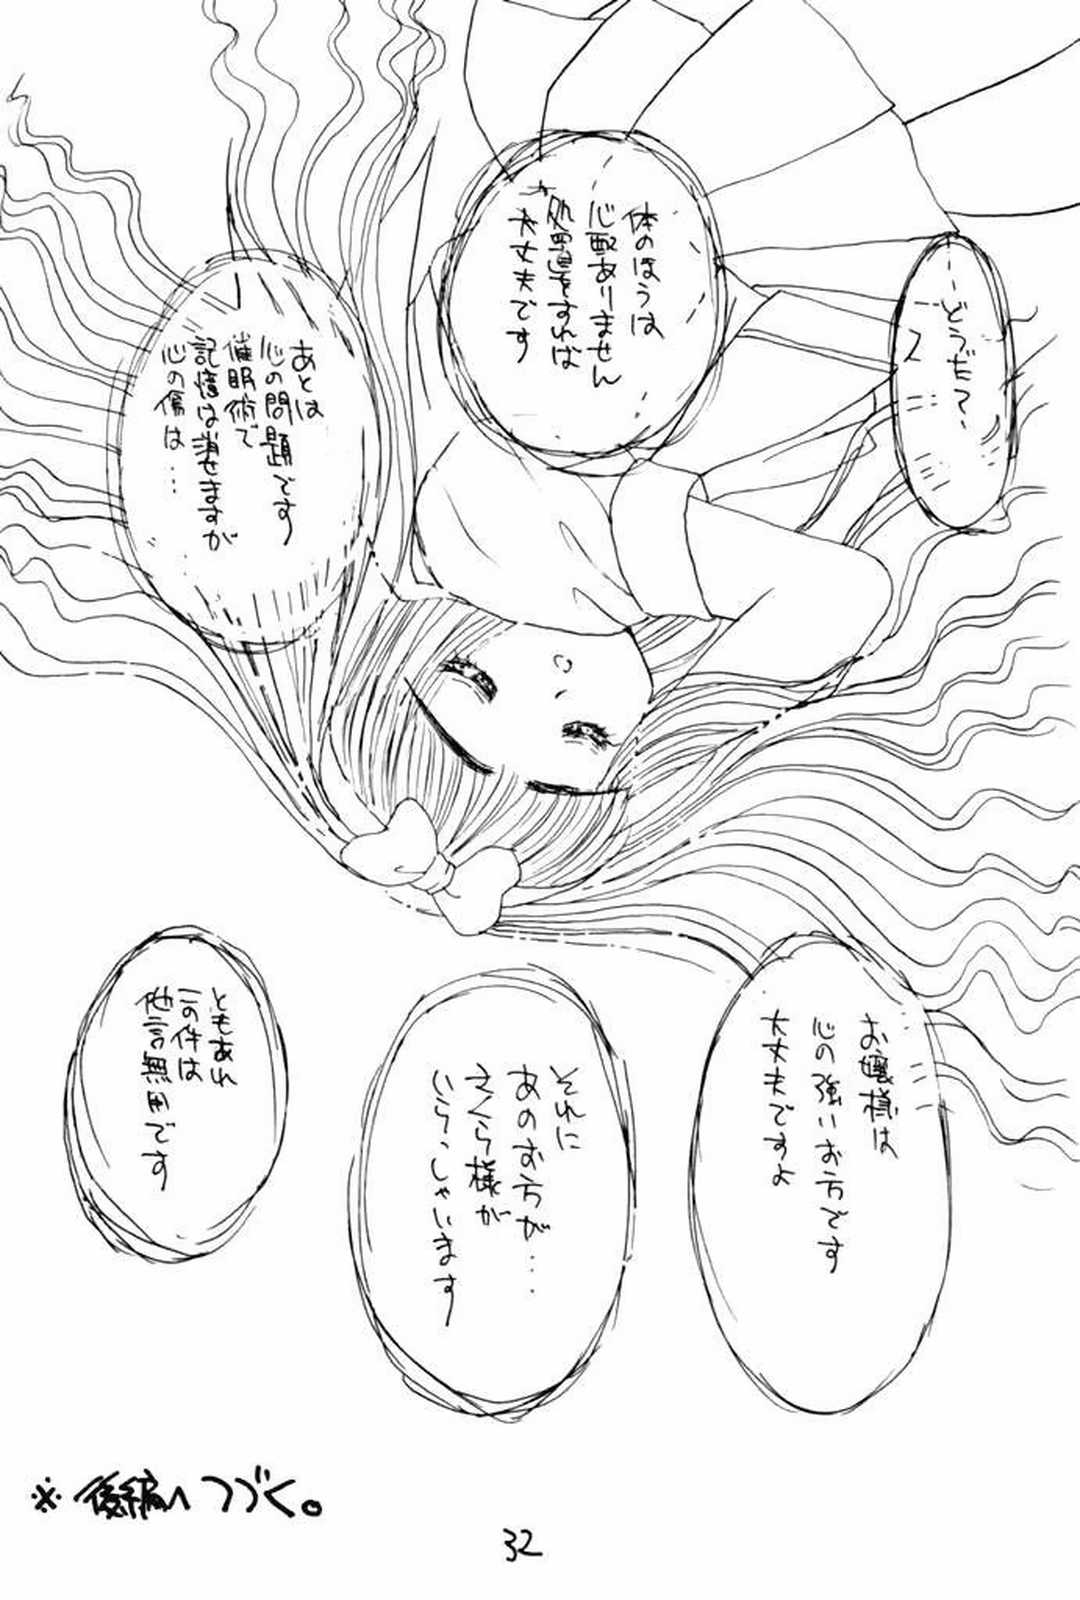 どうだ?
体のほうは
心配ありません
処置をすれば
大丈夫です
あとは
心の問題です
催眠術で
記憶は消せますが
心の傷は…
お嬢様は
心の強いお方です
大丈夫ですよ
それに
あのお方が…
さくら様が
いらっしゃいます
ともあれ
この件は
他言無用です
※後編へつづく。
32